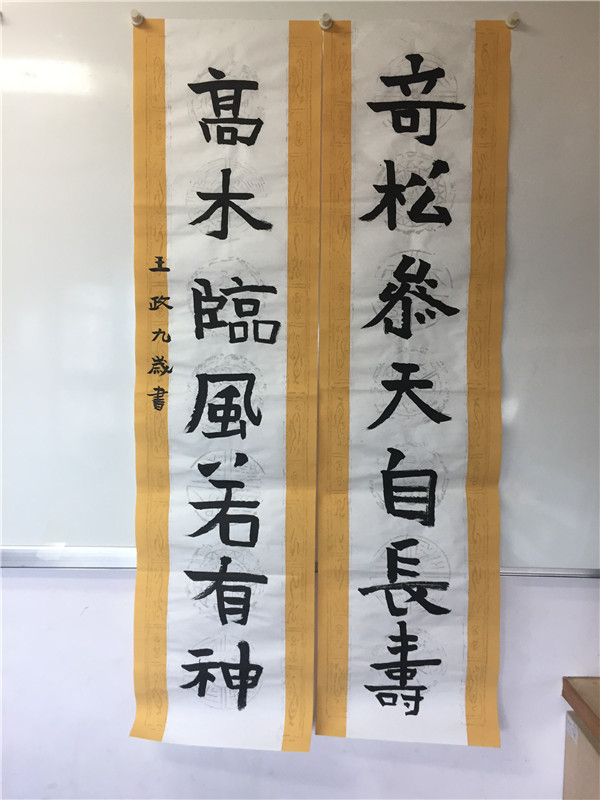 奇松參天自長壽
高木臨風若有神
王政九歲書